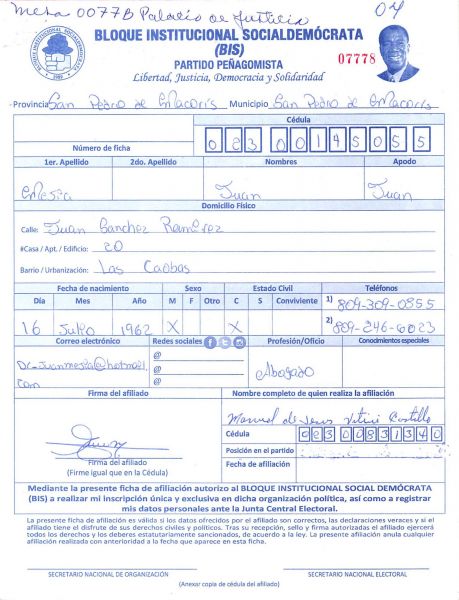 Mesa 0077B Palacio de Justicia 04
BLOQUE INSTITUCIONAL SOCIALDEMÓCRATA
(BIS)
PARTIDO PEÑAGOMISTA
Libertad, Justicia, Democracia y Solidaridad
07778
Provincia San Pedro de Macorís Municipio San Pedro de Macorís
Cédula
Número de ficha 023 0014505 5
1er. Apellido 2do. Apellido Nombres Apodo
Mesia Juan Juan
Domicilio Físico
Calle: Juan Sanchez Ramírez
#Casa / Apt. / Edificio: 20
Barrio / Urbanización: Las Caobas
Fecha de nacimiento Sexo Estado Civil Teléfonos
Día Mes Año M F Otro C S Conviviente 1) 809-309-0855
16 Julio 1962 X X 2) 809-246-6023
Correo electrónico Redes sociales Profesión/Oficio Conocimientos especiales
Dr_Juanmesia@hotmail.
com
@
@
@
Abogado
Firma del afiliado Nombre completo de quien realiza la afiliación
Manuel de Jesus Castillo
Cédula 023 0083134 0
Posición en el partido
Fecha de afiliación
Firma del afiliado
(Firme igual que en la Cédula)
Mediante la presente ficha de afiliación autorizo al BLOQUE INSTITUCIONAL SOCIAL DEMÓCRATA
(BIS) a realizar mi inscripción única y exclusiva en dicha organización política, así como a registrar
mis datos personales ante la Junta Central Electoral.
La presente ficha de afiliación es válida si los datos ofrecidos por el afiliado son correctos, las declaraciones veraces y si el
afiliado tiene el disfrute de sus derechos civiles y políticos. Tras su recepción, sello y firma autorizados el afiliado ejercerá
todos los derechos y los deberes estatutariamente sancionados, de acuerdo a la ley. La presente afiliación anula cualquier
afiliación realizada con anterioridad a la fecha que aparece en esta ficha.
SECRETARIO NACIONAL DE ORGANIZACIÓN SECRETARIO NACIONAL ELECTORAL
(Anexar copia de cédula del afiliado)